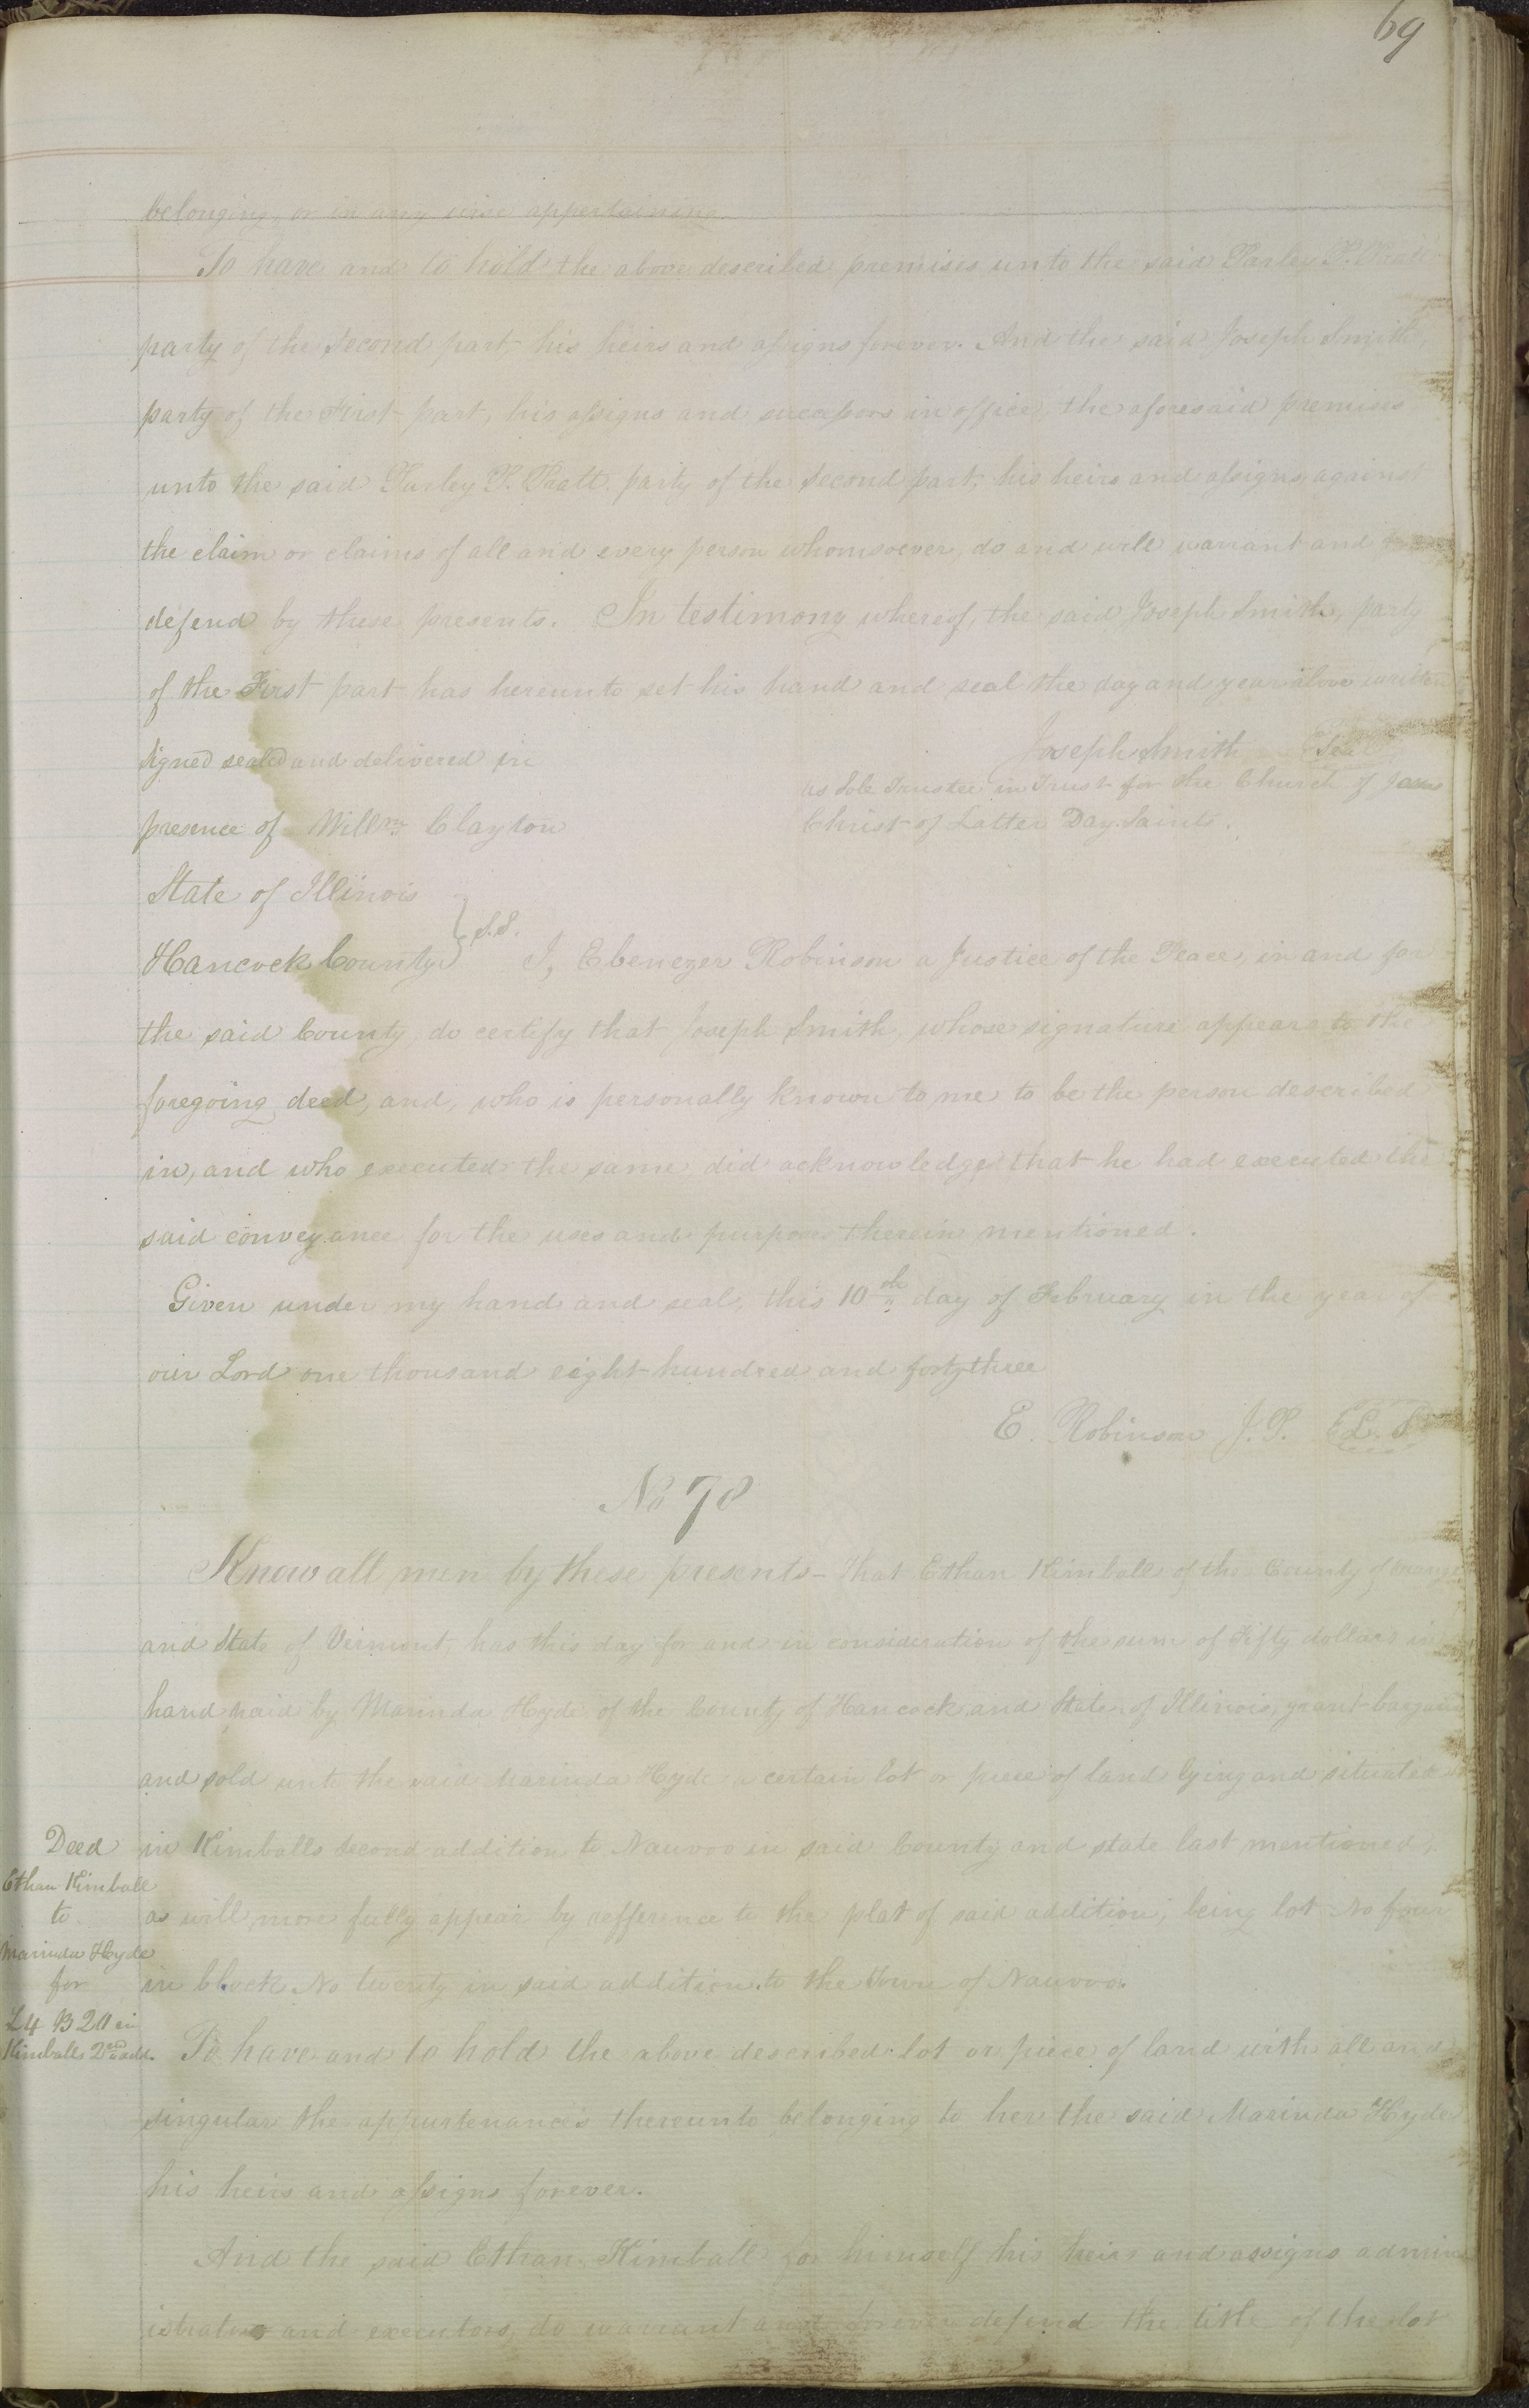 69
belonging, or in any wise appertaining.
To have and to hold the above described premises unto the said Parley P. Pratt
party of the Second part, his heirs and assigns forever. And the said Joseph Smith,
party of the First part, his assigns and successors in office, the aforesaid premises
unto the said Parley P. Pratt party of the Second part, his heirs and assigns, against
the claim or claims of all and every person whomsoever, do and will warrant and
defend by these presents. In testimony whereof, the said Joseph Smith, party
of the First part has hereunto set his hand and seal the day and year above written
Signed sealed and delivered in
Joseph Smith Seal
as Sole Trustee in Trust for the Church of Jesus
presence of Willm Clayton
Christ of Latter Day Saints.
State of Illinois
Hancock County } S.S. I, Ebenezer Robinson a Justice of the Peace, in and for
the said County, do certify that Joseph Smith, whose signature appears to the
foregoing deed, and, who is personally known to me to be the person described
in, and who executed the same, did acknowledge that he had executed the
said conveyance for the uses and purpose therein mentioned.
Given under my hand and seal, this 10th day of February in the year of
our Lord one thousand eight hundred and forty three
E. Robinson J.P. L.S
No 78
Know all men by these presents - that Ethan Kimball of the County of Orange
and State of Vermont, has this day for and in consideration of the sum of Fifty dollars in
hand paid by Marinda Hyde of the County of Hancock and State of Illinois, grant bargain
and sold unto the said Marinda Hyde a certain lot or piece of land lying and situated
in Kimballs second addition to Nauvoo in said County and state last mentioned,
as will more fully appear by refference to the plat of said addition; being lot No four
in block No twenty in said addition to the Town of Nauvoo.
Deed
Ethan Kimball
to
Marinda Hyde
for
L4 B 20 in
Kimballs 2nd add.
To have and to hold the above described lot or piece of land with all and
singular the appurtenances thereunto belonging to her the said Marinda Hyde
his heirs and assigns forever.
And the said Ethan Kimball for himself his heirs and assigns admin
istrators and executors, do warrant and forever defend the title of the lot